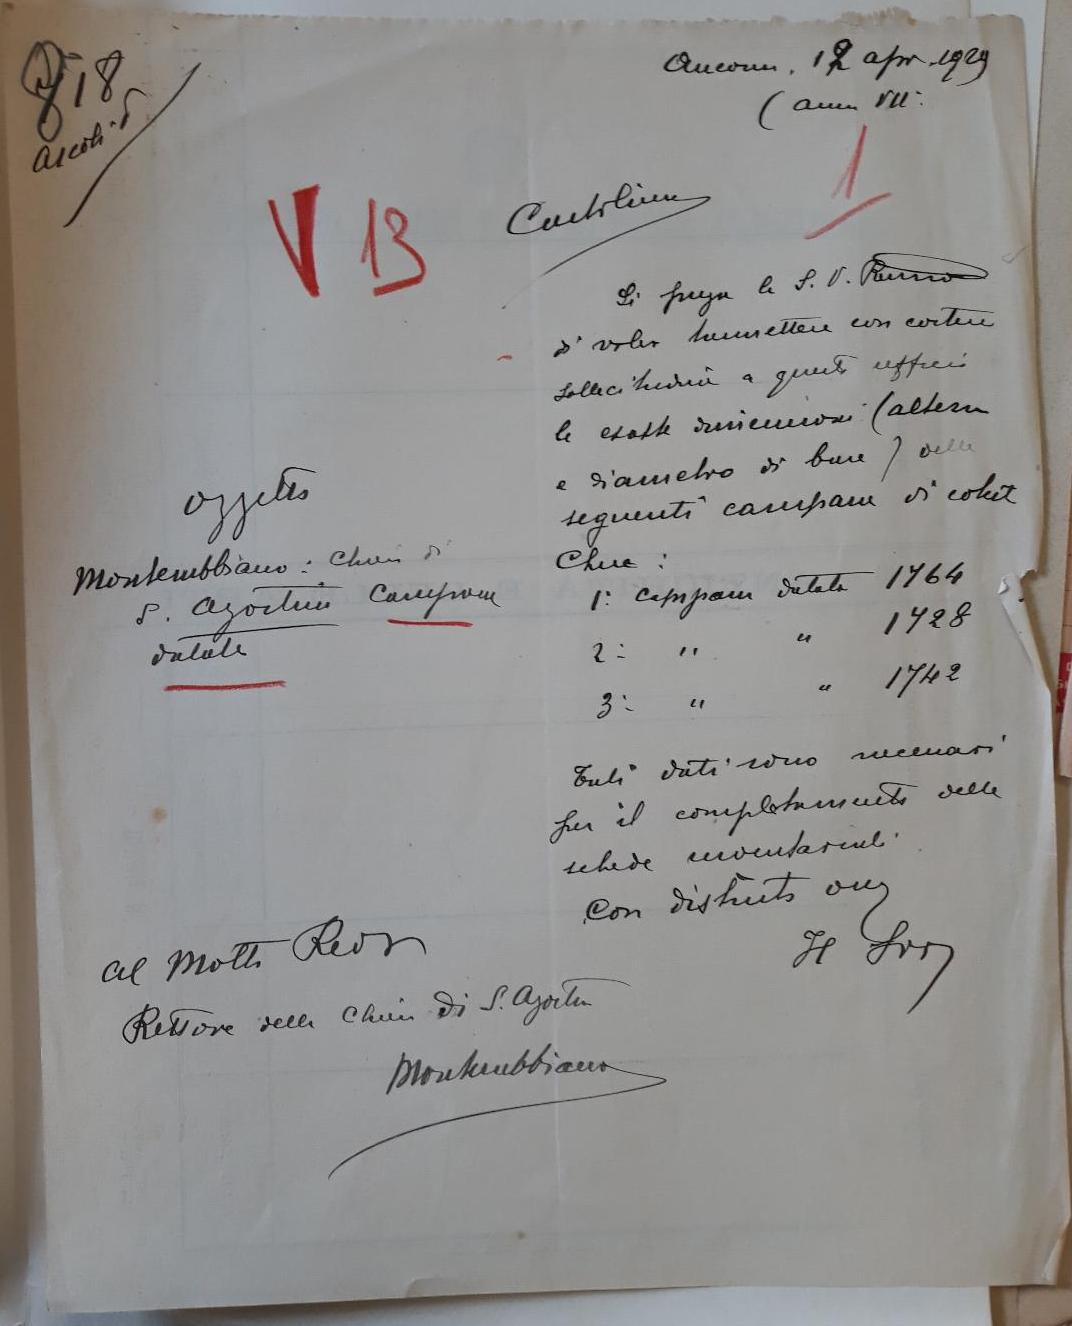 818
Ascoli P.
Ancona, 12 apr. 1929
(anno VII:
V 13
Cartolina
1
Si prega la S. V. Rema
di voler trasmettere con cortese
sollecitudine a questo ufficio
le esatte dimensioni (altezza
e diametro di base) delle
seguenti campane di codesta
Chiesa:
1: campana datata 1764
2: " " 1728
3: " " 1742
Tali dati sono necessari
per il completamento delle
schede inventariali.
Con distinto
Il Sop
Oggetto
Monterubbiano: Chiesa di
S. Agostino Campane
datate
Al Molto Revdo
Rettore della Chiesa di S. Agostino
Monterubbiano